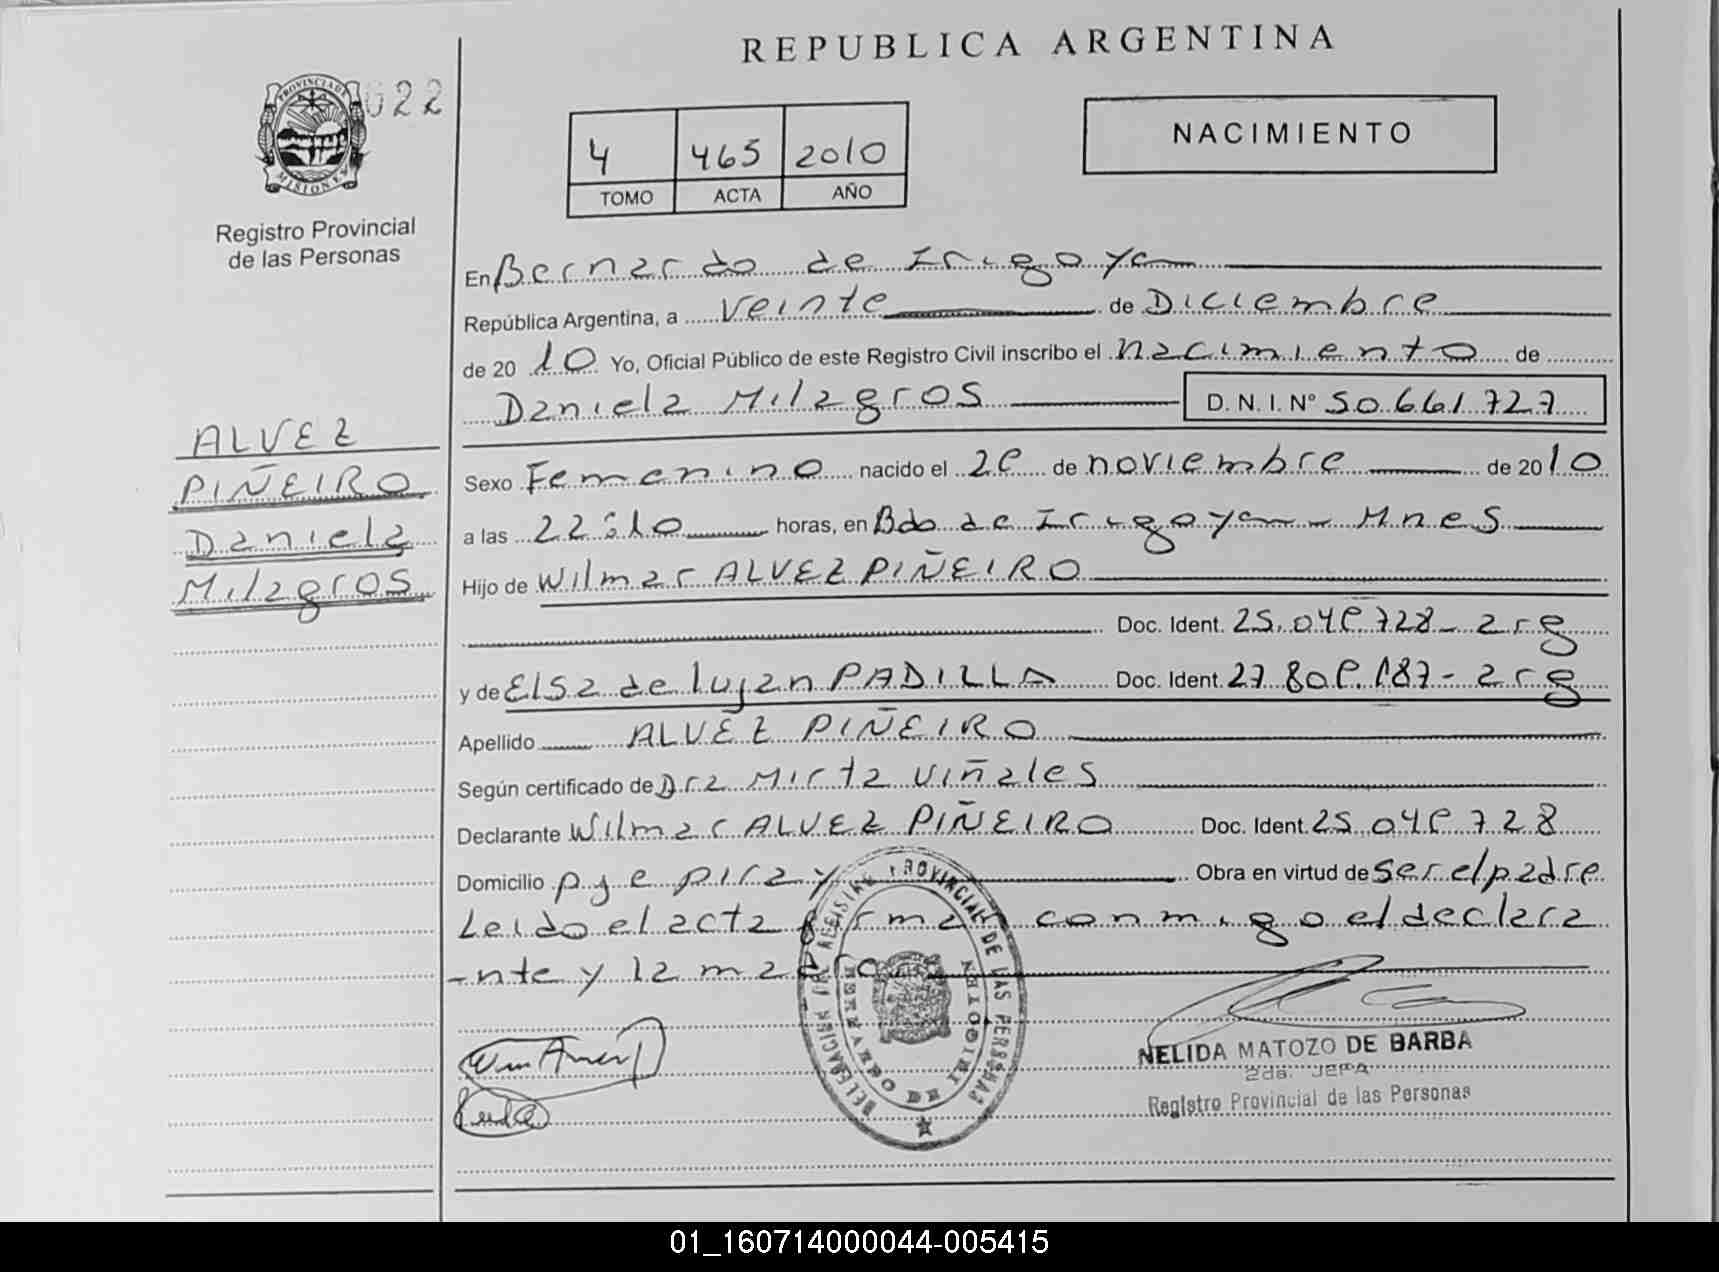 REPUBLICA ARGENTINA
PROVINCIA DE MISIONES
622
4 465 2010
TOMO ACTA AÑO
NACIMIENTO
Registro Provincial
de las Personas
ALVEZ
PIÑEIRO
Daniela
Milagros
En Bernardo de Irigoyen
República Argentina, a veinte de Diciembre
de 2010 Yo, Oficial Público de este Registro Civil inscribo el nacimiento de
Daniela Milagros D. N. I. Nº 50.661.727
Sexo Femenino nacido el de noviembre de 2010
a las 22:10 horas, en Bdo de Irigoyen - Mnes
Hijo de Wilmar ALVEZ PIÑEIRO
Doc. Ident. arg
y de Elsa de lujan PADILLA Doc. Ident. arg
Apellido ALVEZ PIÑEIRO
Según certificado de Dra Mirta Viñales
Declarante Wilmar ALVEZ PIÑEIRO Doc. Ident.
Domicilio pje piray Obra en virtud de ser el padre
Leido el acta firman conmigo el declara
-nte y la madre
DELEGACION DEL REGISTRO PROVINCIAL DE LAS PERSONAS
BERNARDO DE IRIGOYEN
NELIDA MATOZO DE BARBA
2da. JEFA
Registro Provincial de las Personas
01_160714000044-005415